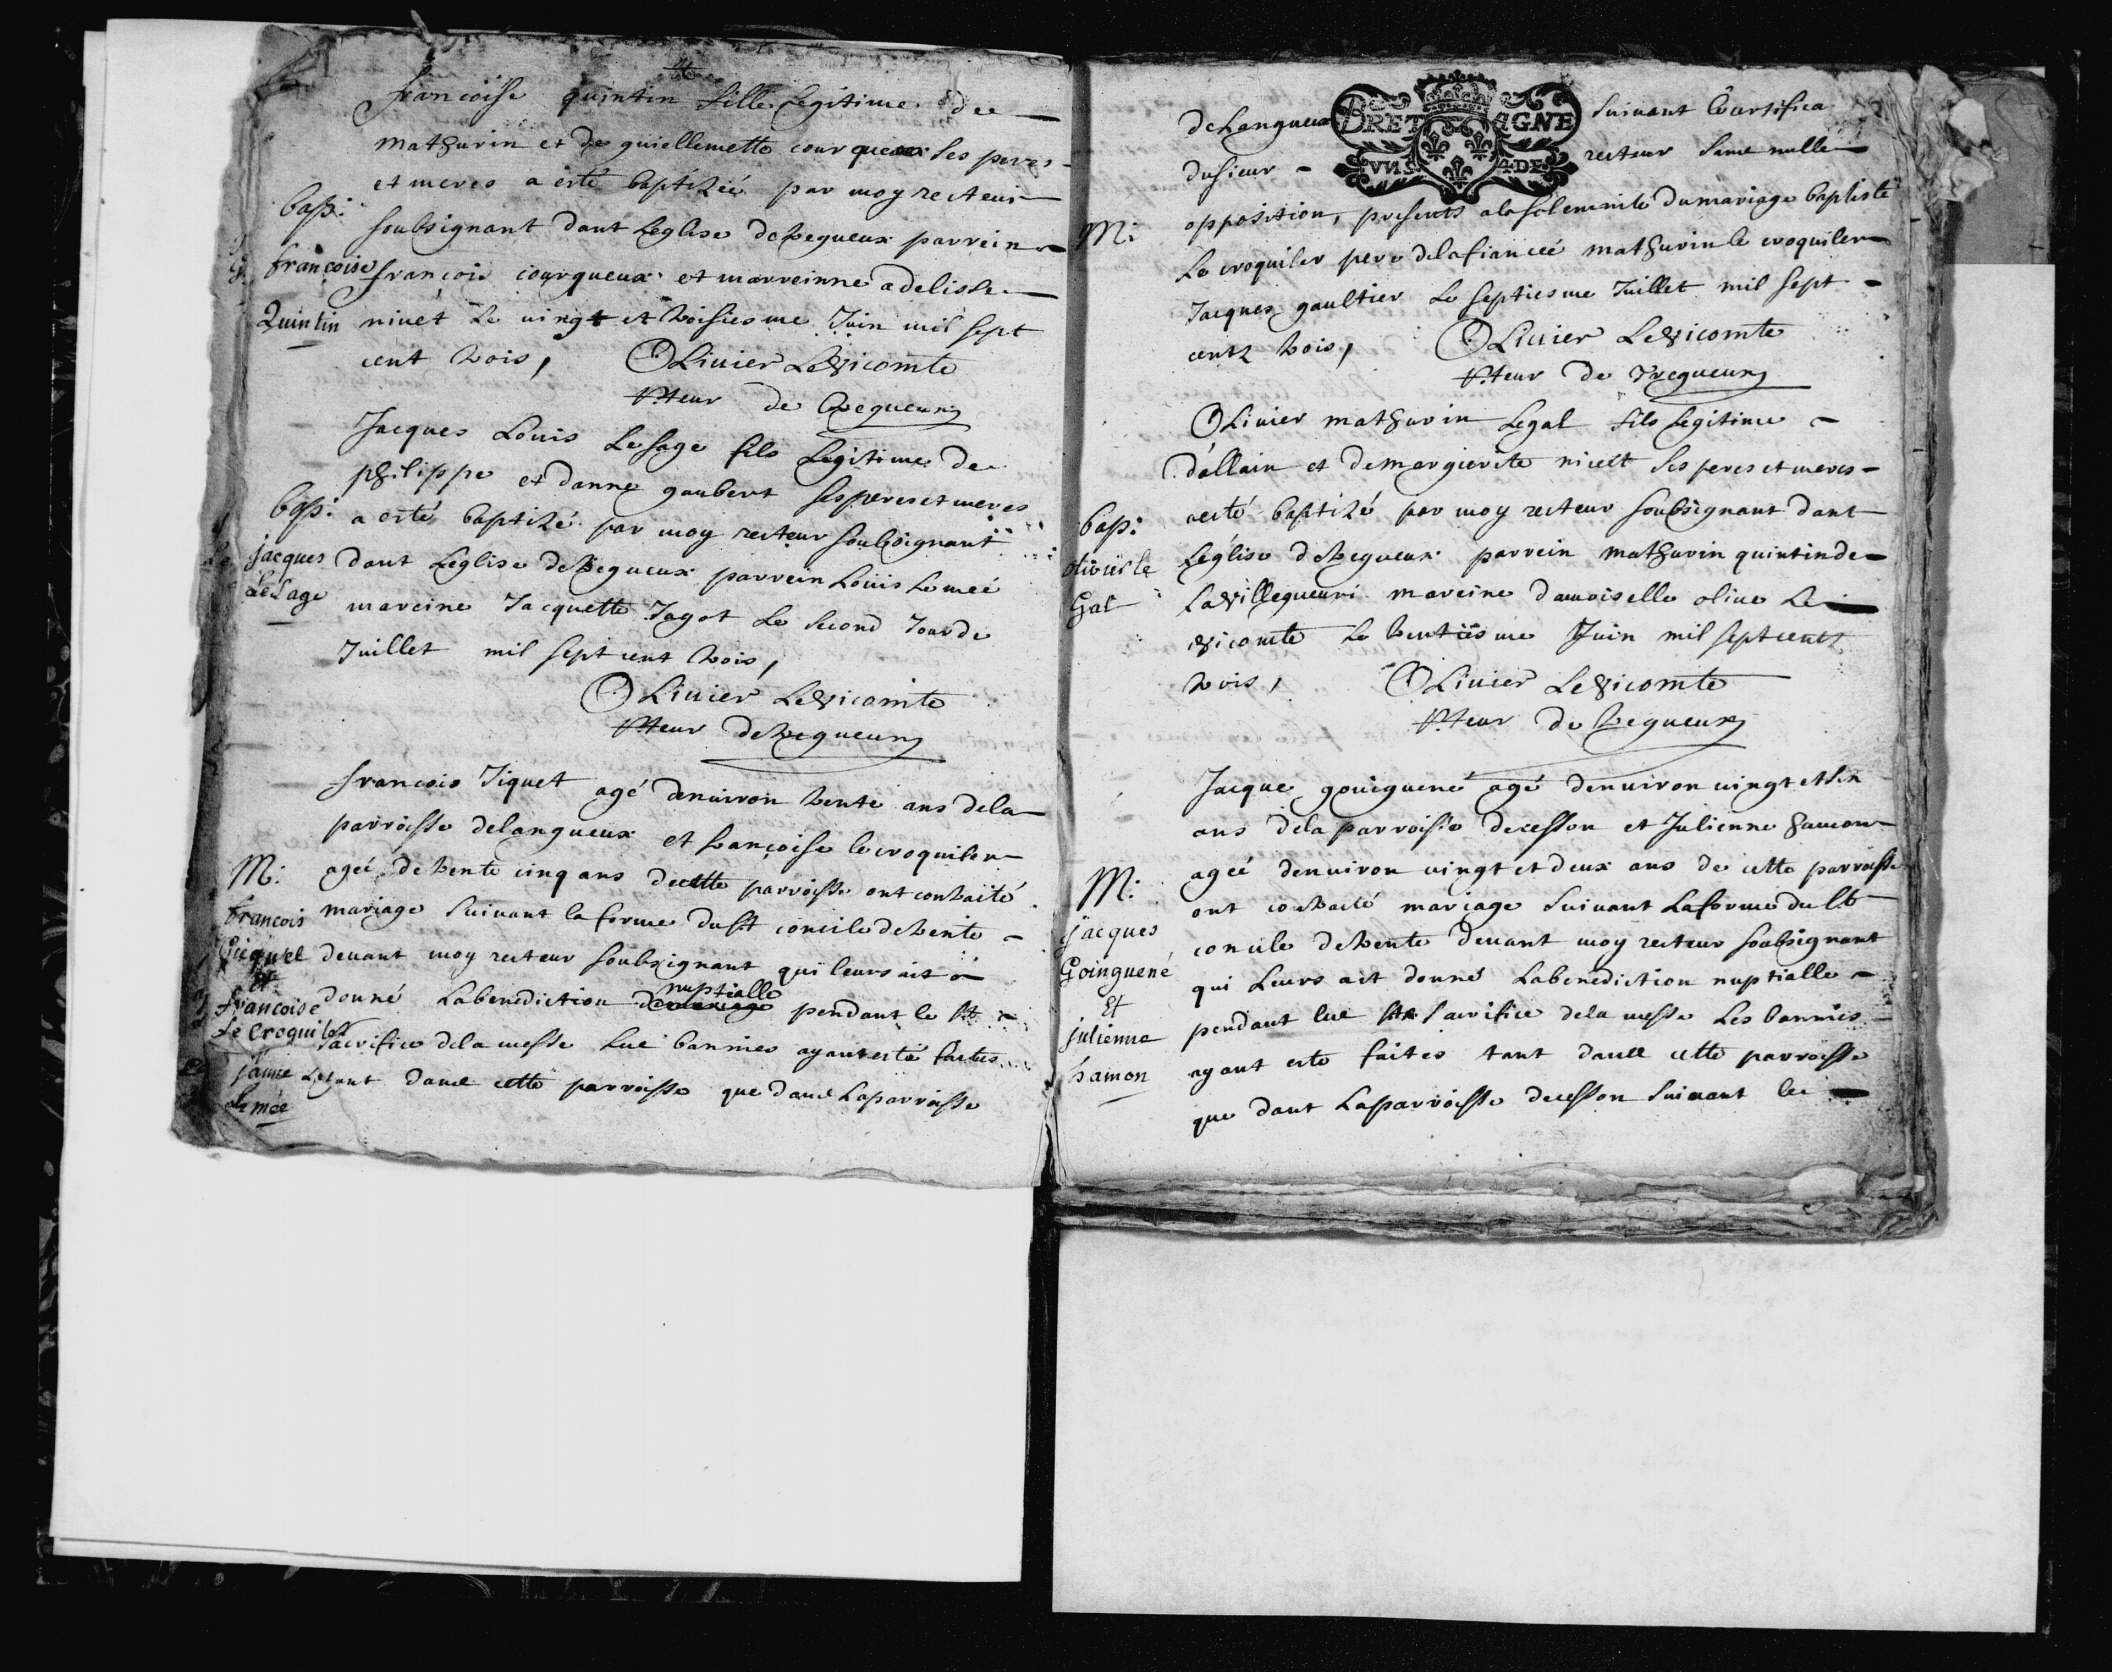 françoise quintin fille Legitime de
mathurin et de guiellemette courqueux ses peres
et meres a esté baptizée par moy recteur
bapt:
soubsignant dant Leglise de tregueux parrein
françoise
françois courqueux et marreinne adelisse
Quintin
nivet Le vingt et troisiesme Juin mil sept
cent trois, OLivier Levicomte
Rteur de tregueux
Jacques Louis Lesage fils Legitime de
philippe et danne goubert ses peres et meres
bapt:
a esté baptizé par moy recteur soubsignant
jacques
dant Leglise de tregueux parrein Louis Lemeé
Le Sage
mareine Jacquette Jagot Le second Jour de
Juillet mil sept cent trois,
OLivier Levicomte
Rteur de tregueux
françois Jiquet agé denviron trente ans dela
parroisse delangueux et françoise le croquiler
M:
ageé de trente cinq ans decette parroisse ont contraité
françois
mariage suivant la forme du st concile detrente
Gicquel
devant moy recteur soubsignant qui leurs ait
et
nuptialle
françoise
donné Labenediction de mariage pendant le st
Le Croquiler
sacrifice dela messe Les bannies ayant esté faites
tant dans cette parroisse que dans Laparroisse
de Langueux suivant Le certifica
BRETAGNE
du sieur recteur sans nulle
M:
opposition, presents a la solemnité du mariage baptiste
Le croquiler pere de la fianceé mathurin le croquiler
Jacques gaultier Le septiesme Juillet mil sept
cents trois, OLivier Levicomte
Rteur de Tregueux
OLivier mathurin Legal fils Legitime
dallain et de margierite nivet ses peres et meres
bapt:
aesté baptizé par moy recteur soubsignant dant
olivier le
Leglise de tregueux parrein mathurin quintin de
Gal
Lavillegueuri mareine damoiselle olive Le
vicomte Le trentiesme Juin mil sept cents
trois, OLivier Levicomte
Rteur de tregueux
Jacque goüiguené agé denviron vingt et six
ans dela parroisse decesson et Julienne hamon
M:
ageé denviron vingt et deux ans de cette parroisse
ont contraité mariage suivant La forme du st
jacques
concile de trente devant moy recteur soubsignant
Goinguené
qui Leurs ait donné Labenediction nuptialle
Et
pendant Le st sacrifice dela messe Les bannies
julienne
ayant esté faites tant dans cette parroisse
hamon
que dant Laparroisse decesson suivant le